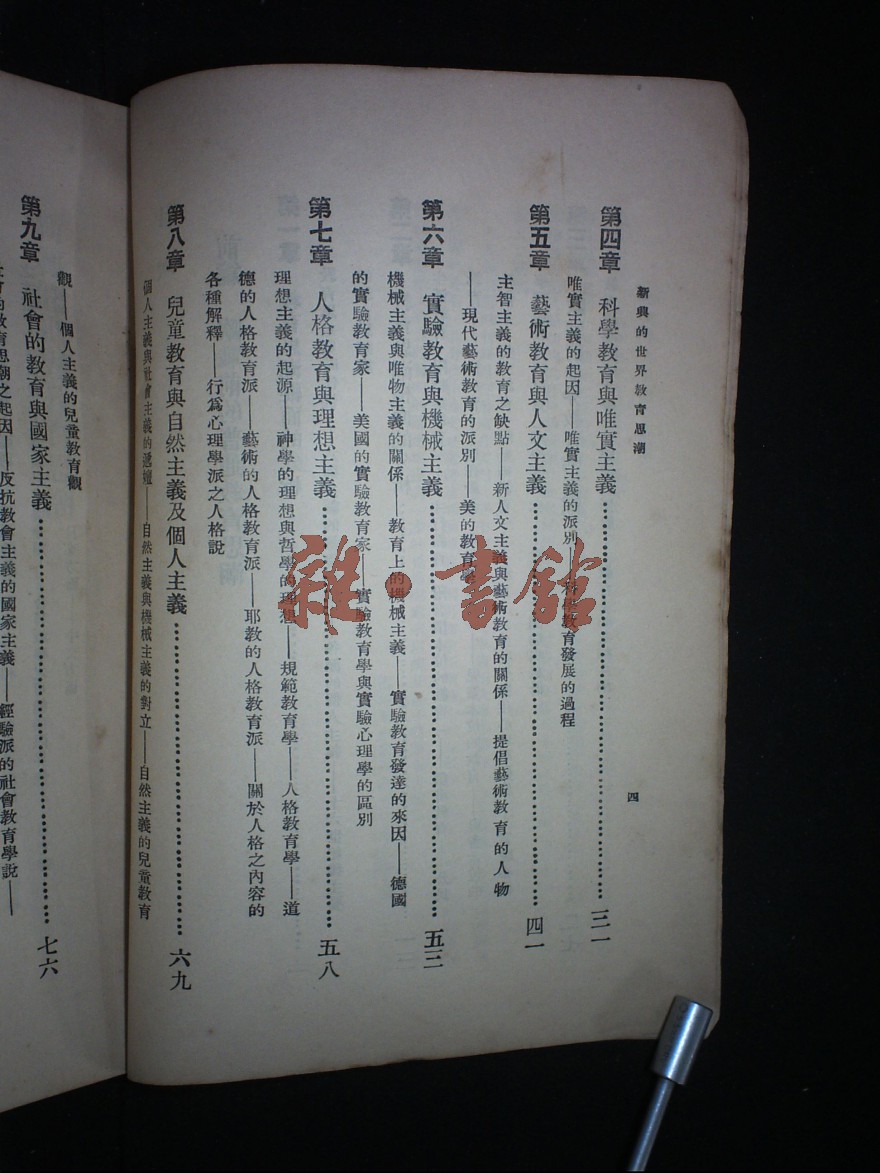 新興的世界教育思潮
四
第四章　科學教育與唯實主義……三一
唯實主義的起因——唯實主義的派別——科學教育發展的過程
第五章　藝術教育與人文主義……四一
主智主義的教育之缺點——新人文主義與藝術教育的關係——提倡藝術教育的人物
——現代藝術教育的派別——美的教育學
第六章　實驗教育與機械主義……五三
機械主義與唯物主義的關係——教育上的機械主義——實驗教育發達的來因——德國
的實驗教育家——美國的實驗教育家——實驗教育學與實驗心理學的區別
第七章　人格教育與理想主義……五八
理想主義的起源——神學的理想與哲學的理想——規範教育學——人格教育學——道
德的人格教育派——藝術的人格教育派——耶教的人格教育派——關於人格之內容的
各種解釋——行為心理學派之人格說
第八章　兒童教育與自然主義及個人主義……六九
個人主義與社會主義的遞嬗——自然主義與機械主義的對立——自然主義的兒童教育
觀——個人主義的兒童教育觀
第九章　社會的教育與國家主義……七六
教育思潮之起因——反抗教會主義的國家主義——經驗派的社會教育學說——
雜·書館